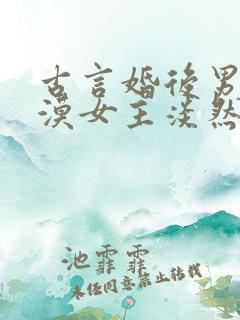 古言婚后男
漠女主淡然
池霏霏
未经同意禁止转载